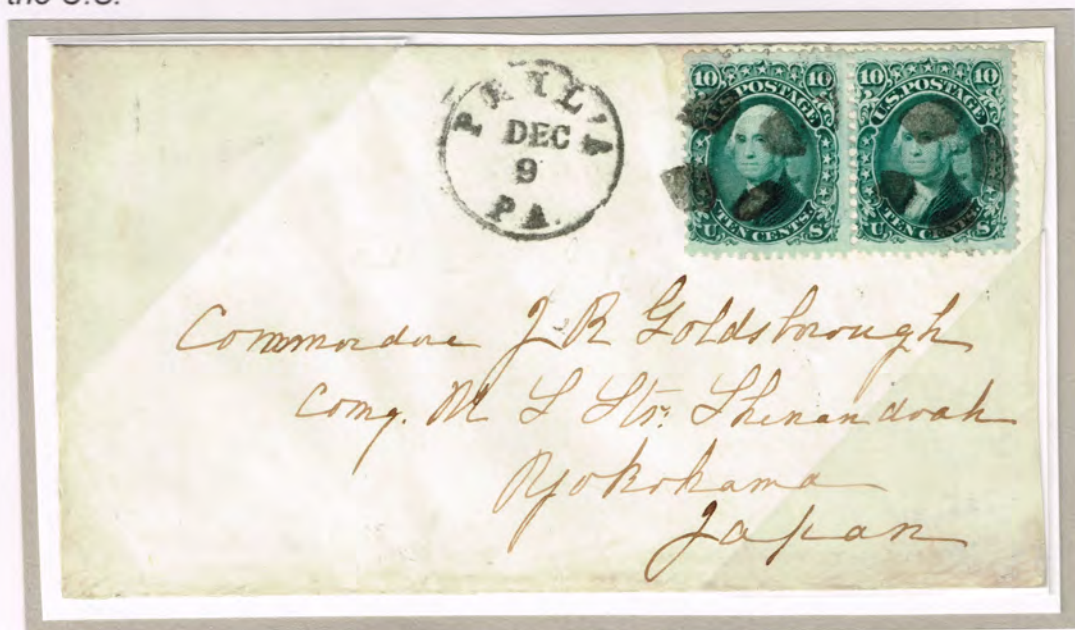 the U.S.
PHIL'A
DEC
9
PA.
10 10
U.S. POSTAGE
TEN CENTS.
U S
10 10
U.S. POSTAGE
TEN CENTS.
U S
Commodore J R Goldsborough
Comg. U S Str. Shenandoah
Yokohama
Japan